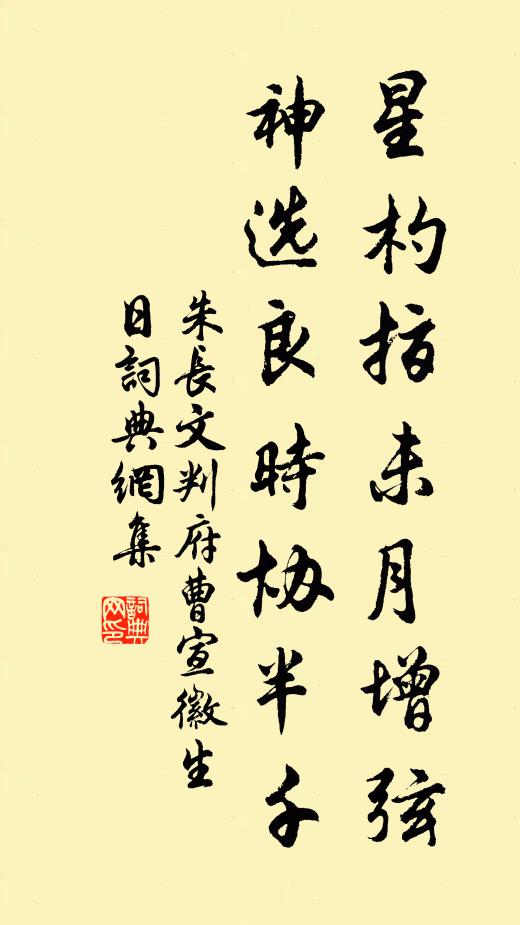 星杓指未月增弦
神选良時協半千
朱長文判府曹宣徽生
日詞典網集
詞典
网印